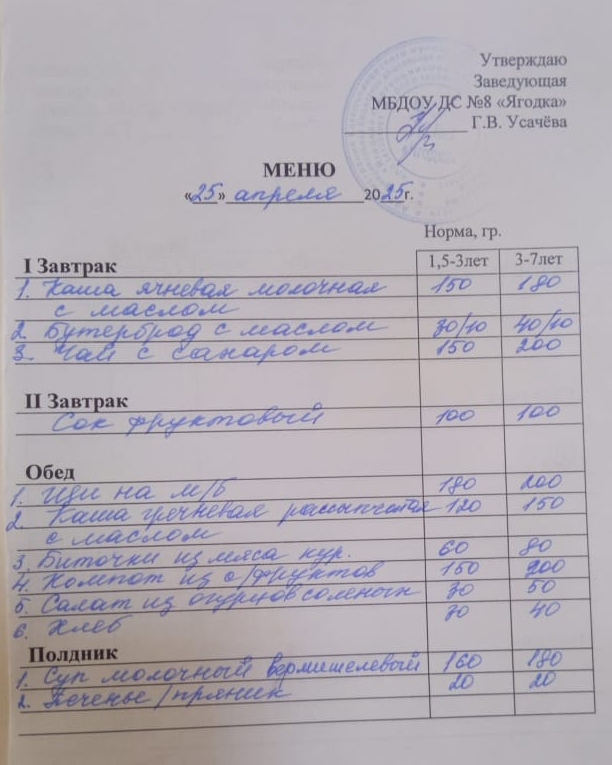 Утверждаю
Заведующая
МБДОУ ДС №8 «Ягодка»
Г.В. Усачёва
МЕНЮ
«25» апреля 2025г.
Норма, гр.
I Завтрак 1,5-3лет 3-7лет
1. Каша ячневая молочная 150 180
с маслом
2. Бутерброд с маслом 30/10 40/10
3. Чай с сахаром 150 200
II Завтрак
Сок фруктовый 100 100
Обед
1. Щи на м/б 180 200
2. Каша гречневая рассыпчатая 120 150
с маслом
3. Биточки из мяса кур. 60 80
4. Компот из с/фруктов 150 200
5. Салат из огурцов солёных 30 50
6. Хлеб 30 40
Полдник
1. Суп молочный вермишелевый 160 180
2. Печенье/пряник 20 20